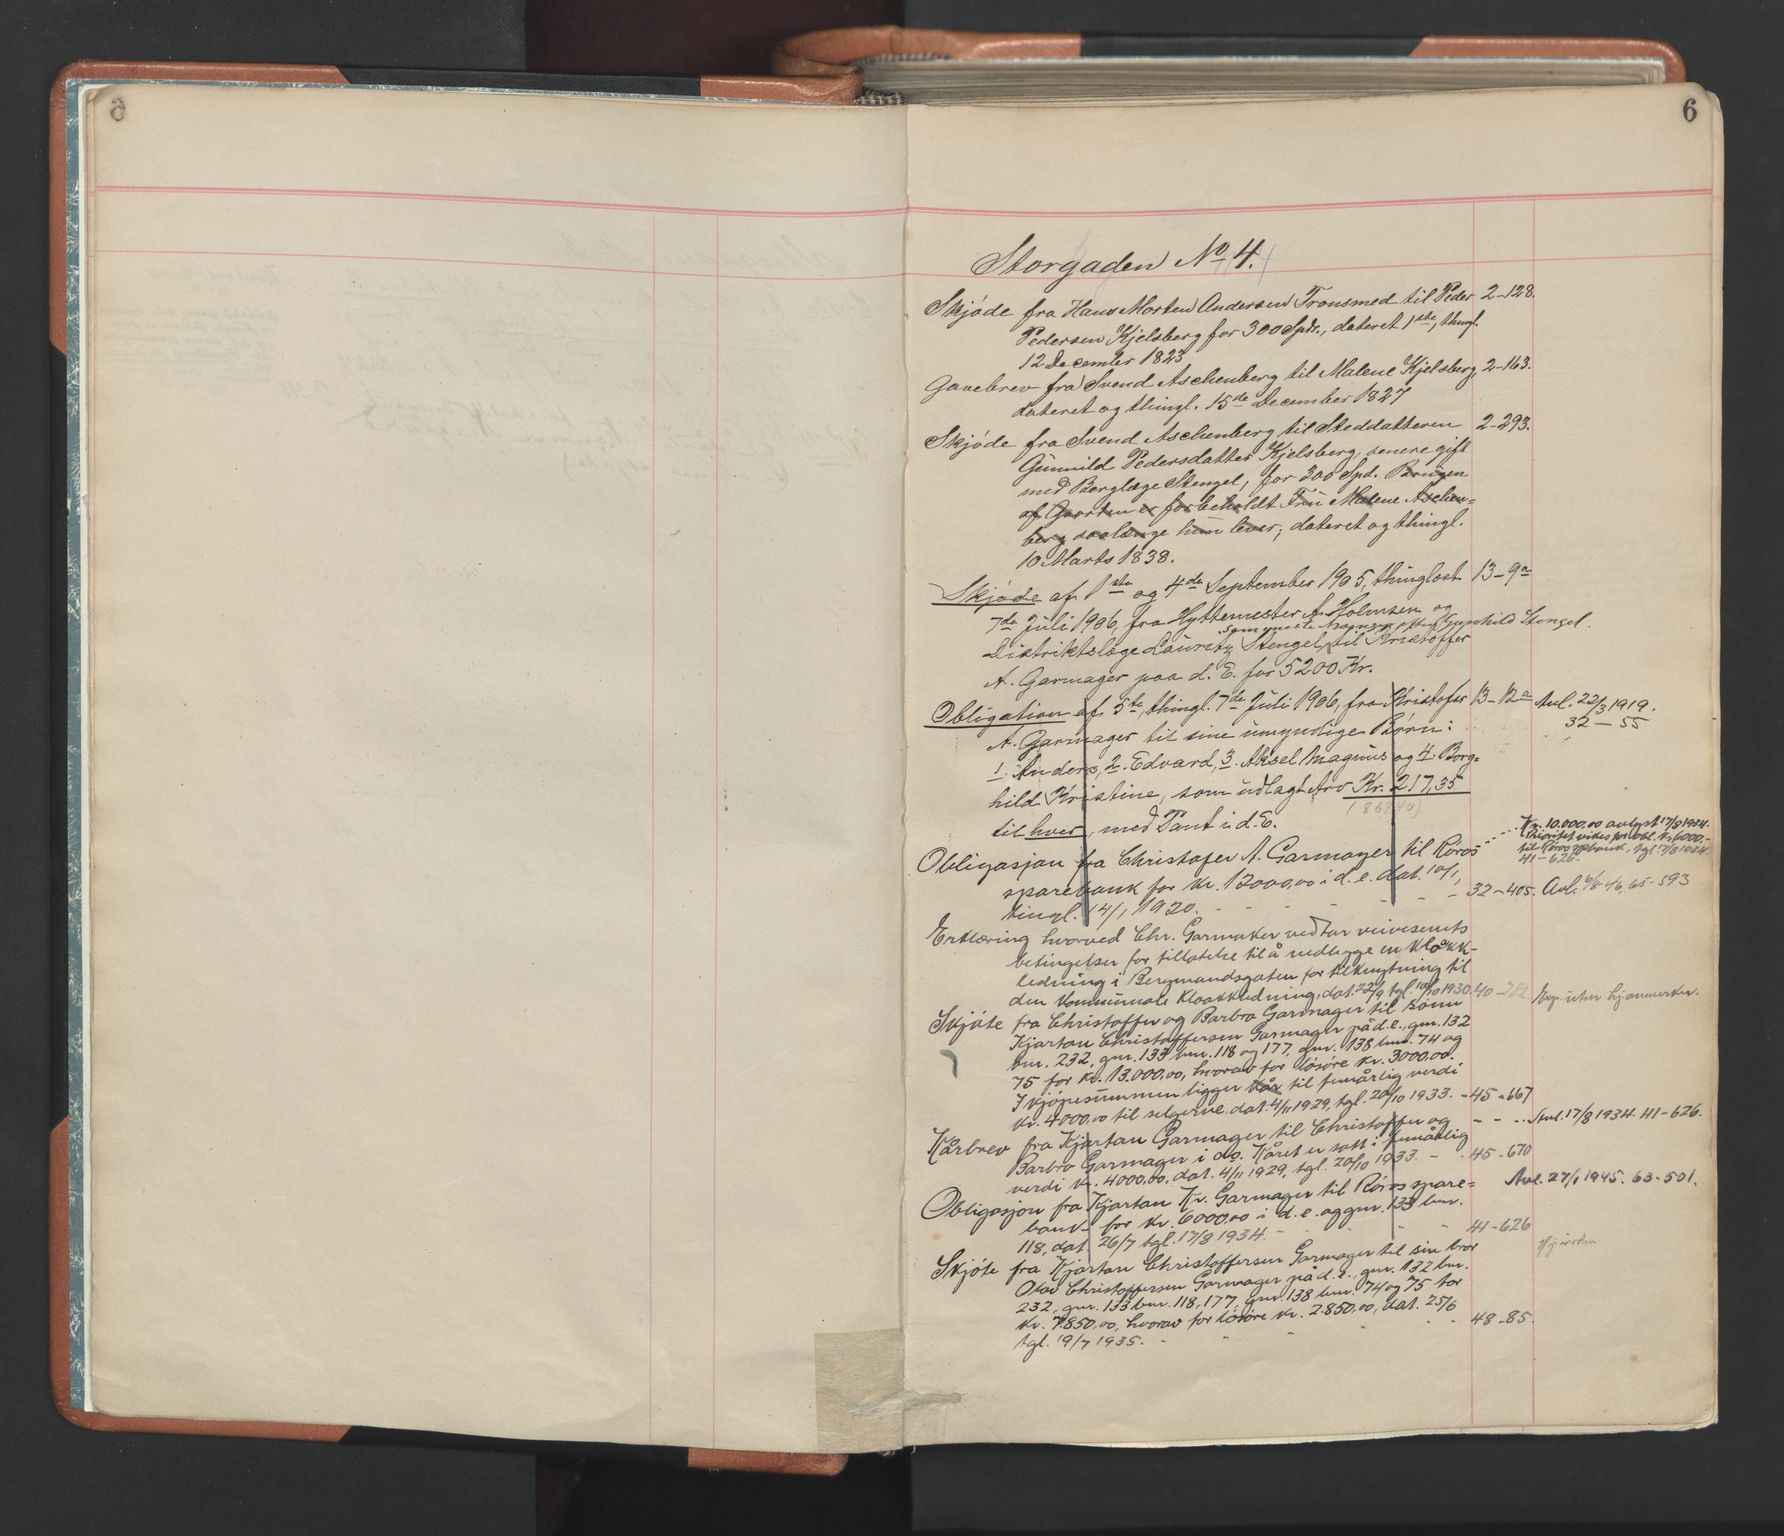 6
6
Storgaden No 4.
Skjøde fra Hans Morten Andersen Tronsmed til Peder 2-128.
Pedersen Kjelsberg for 300 Spdr., dateret 1ste, thingl.
12 December 1823
Gavebrev fra Svend Aschenberg til Malene Kjelsberg, 2-163.
dateret og thingl. 15de December 1827
Skjøde fra Svend Aschenberg til Steddatteren 2-293.
Gunnild Pedersdatter Kjelsberg, senere gift
med Berglæge Stengel, for 300 Spd. Brugen
af Gaarden er forbeholdt Fru Malene Aschen-
berg saalænge hun lever; dateret og thingl.
10 Marts 1838.
Skjøde af 1ste og 4de September 1905, thinglæst 13-9a
7de Juli 1906, fra Hyttemester A. Holmsen og
som eneste Arvinger efter Gunhild Stengel.
Distriktslæge Lauritz Stengel, til Kristoffer
A. Garmager paa d. E. for 5200 Kr.
Obligation af 5te, thingl. 7de Juli 1906, fra Kristofer 13-12a Avl. 22/3 1919.
A. Garmager til sine umyndige Børn: 32-55
1. Anders, 2. Edvard, 3. Aksel Magnus og 4. Borg-
hild Kristine, som udlagt Arv Kr. 217,35
til hver, med Pant i d. E.
Kr. 10.000,00 avlyst 17/8 1934.
Prioritet vikes for obl. kr. 6000.-
til Røros spbank, tgl 17/8 1934.
41-626.
Obligasjon fra Christofer A. Garmager til Røros
sparebank for kr. 12000,00 i d. e. dat. 10/1,
tingl. 14/1 1920. - - - - - 32-405. Avl. 6/8-46, 65-593
Erklæring hvorved Chr. Garmaker vedtar veivesenets
betingelser for tillatelse til å nedlegge en kloakk-
ledning i Bergmandsgaten for tilknytning til
den kommunale kloakkledning, dat. 22/9 tgl. 10/10 1930. 40-762
Skjøte fra Christoffer og Barbro Garmager til sønn
Kjartan Christoffersen Garmager på d. e., gnr. 132
bnr. 232, gnr. 133 bnr. 118 og 177, gnr. 138 bnr. 74 og
75 for kr. 13.000,00, hvorav for løsøre kr. 3000.00.
I kjøpesummen ligger kår til femårlig verdi
kr. 4000.00 til selgerne, dat. 4/11 1929, tgl. 20/10 1933. - 45-667
Kårbrev fra Kjartan Garmager til Christoffer og - - - Avl. 17/8 1934. 41-626.
Barbro Garmager i do. Kåret er satt i femårlig
verdi kr. 4000.00, dat. 4/11 1929, tgl. 20/10 1933. - - 45-670
Obligasjon fra Kjartan Kr. Garmager til Røros spare- Avl. 27/1 1945. 63-501.
bank for kr. 6000.00 i d. e. og gnr. 133 bnr.
118, dat. 26/7 tgl. 17/8 1934. - - - - 41-626
Skjøte fra Kjartan Christoffersen Garmager til sin bror
Olav Christoffersen Garmager på d. e., gnr. 132 bnr.
232, gnr. 133 bnr. 118, 177, gnr. 138 bnr. 74 og 75 for
kr. 7.850,00, hvorav for løsøre kr. 2.850,00, dat. 25/6
tgl. 19/7 1935. - - - - - - 48-85.